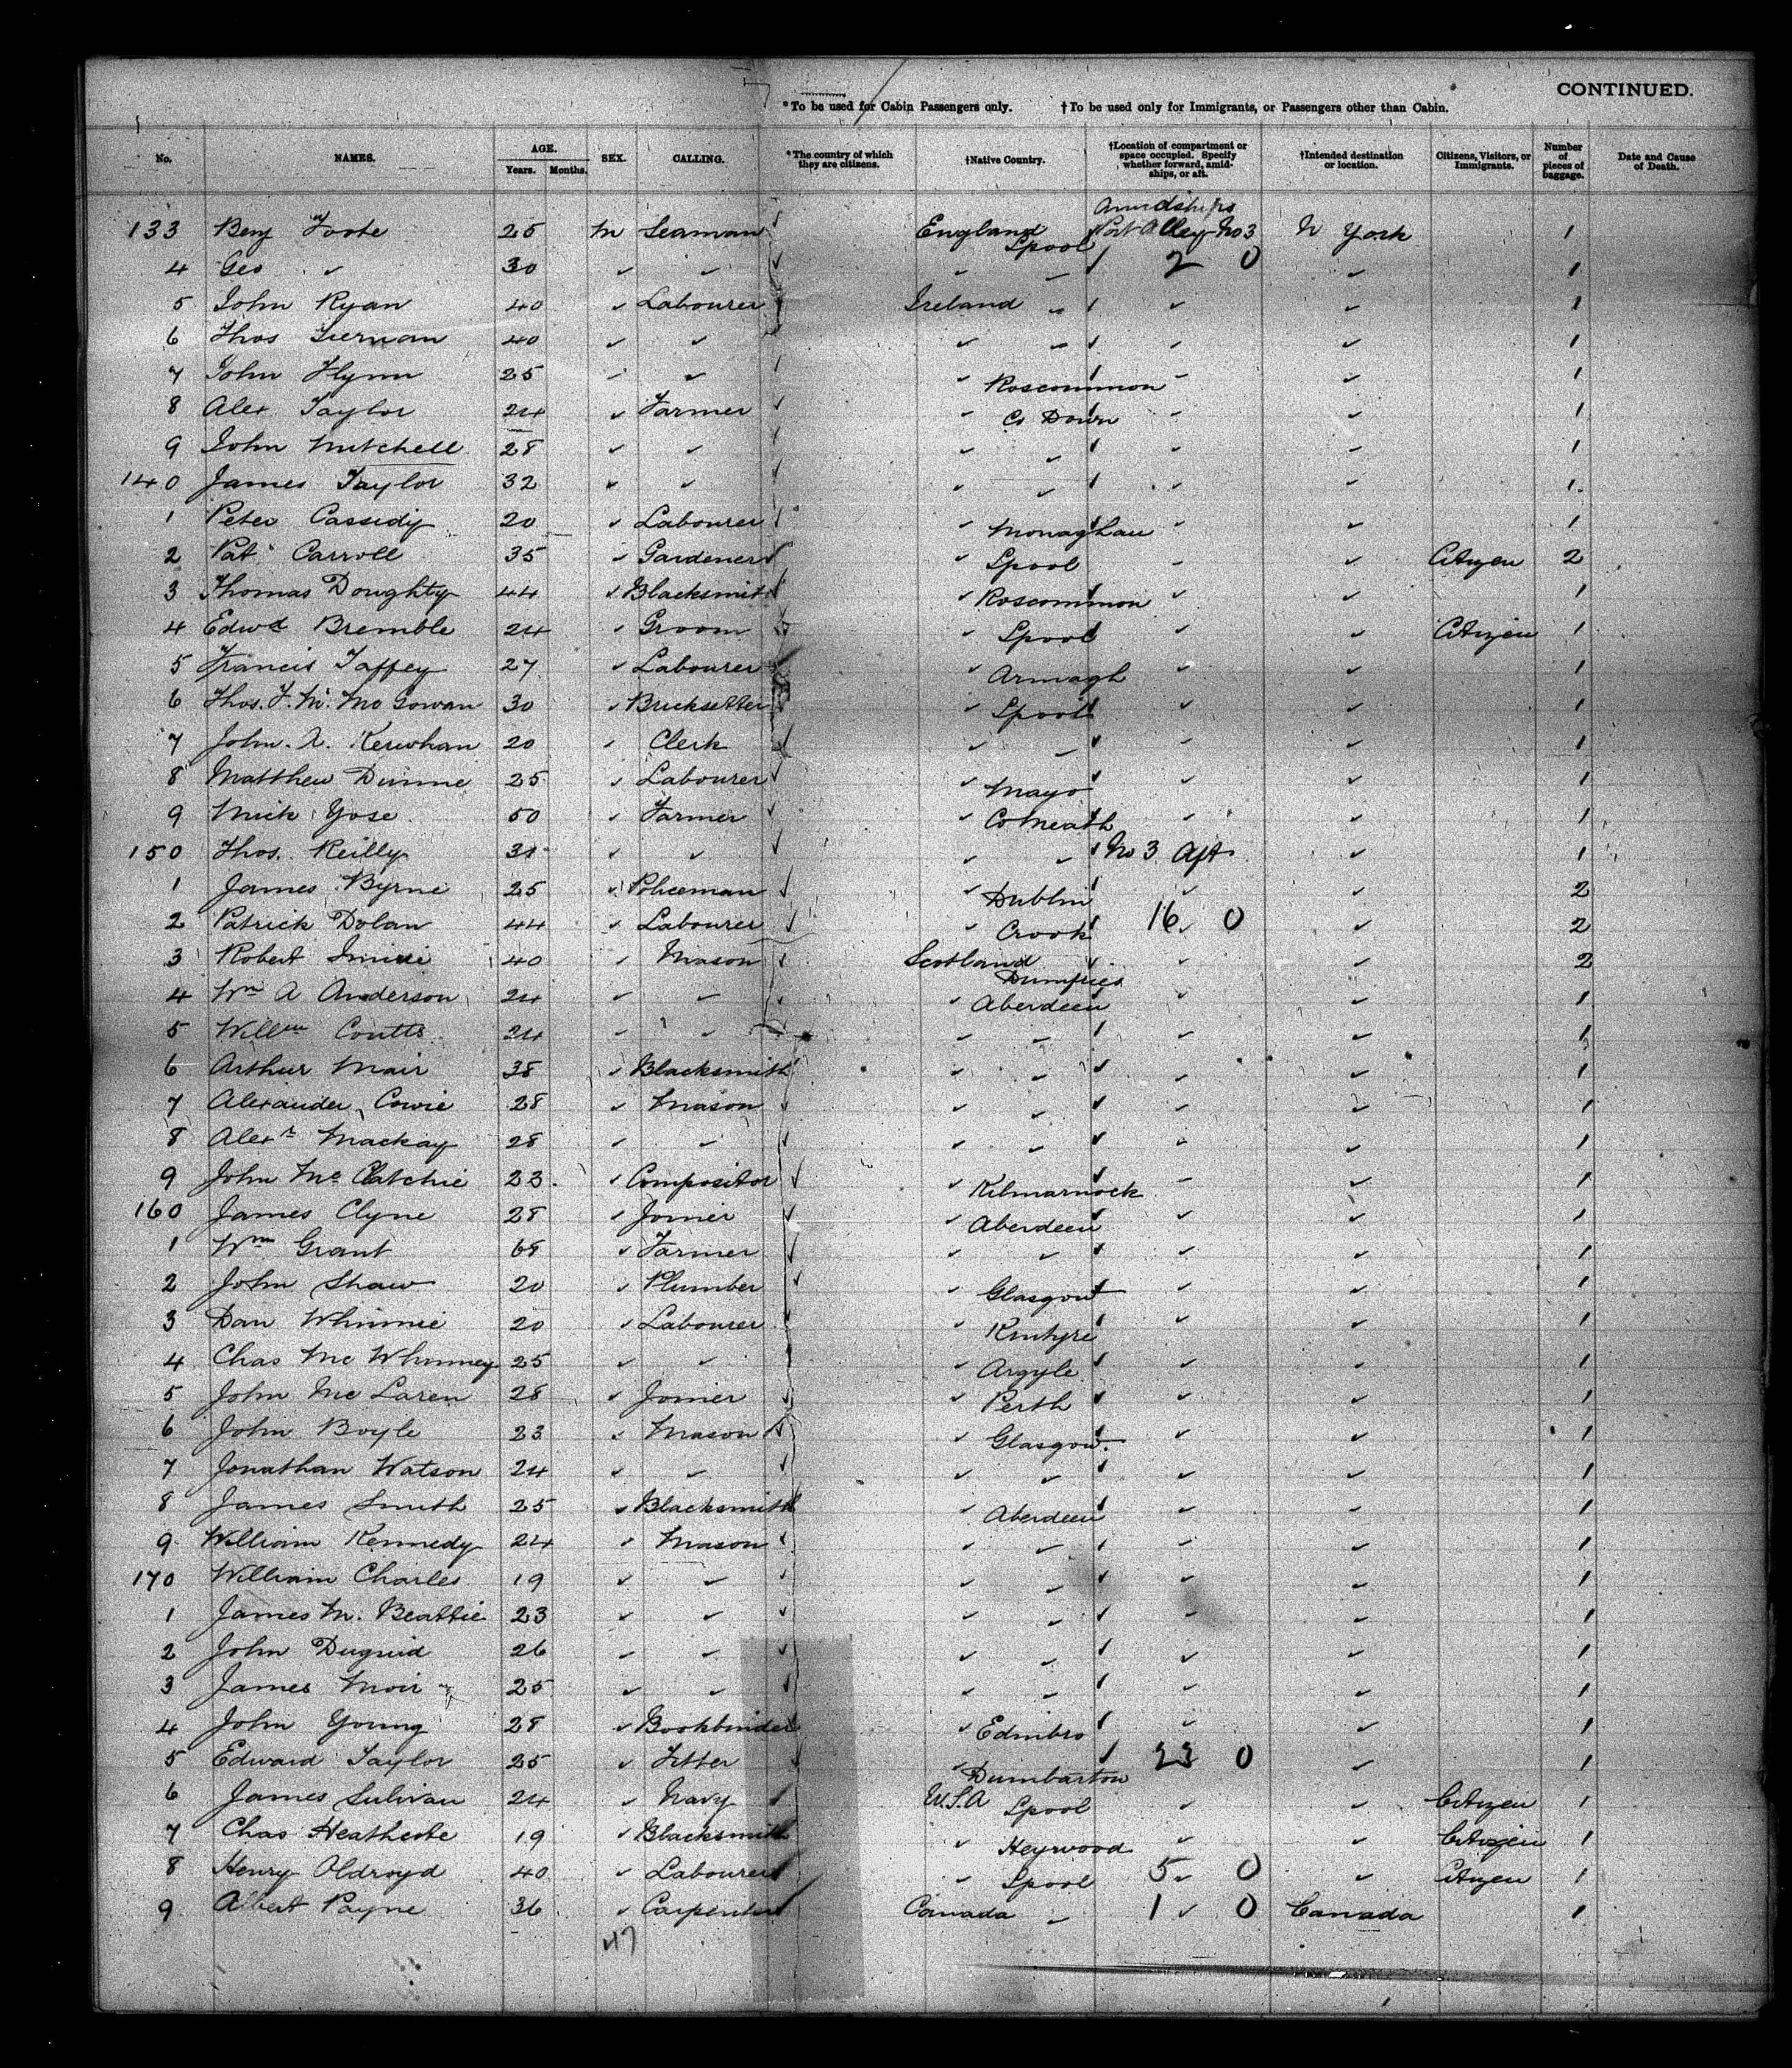 CONTINUED.
* To be used for Cabin Passengers only. † To be used only for Immigrants, or Passengers other than Cabin.
No. NAMES. AGE. Years. Months. SEX. CALLING. *The country of which they are citizens. †Native Country. †Location of compartment or space occupied. Specify whether forward, amidships, or aft. †Intended destination or location. Citizens, Visitors, or Immigrants. Number of pieces of baggage. Date and Cause of Death.
Amidships
133 Benj Foote 25 M Seaman England Lpool Port Alley No 3 N York 1
4 Geo " 30 " " " " 2 0 " 1
5 John Ryan 40 " Labourer Ireland " " " 1
6 Thos Tiernan 40 " " " " " " 1
7 John Flynn 25 " " " Roscommon " " 1
8 Alex Taylor 24 " Farmer " Co Down " " 1
9 John Mitchell 28 " " " " " " 1
140 James Taylor 32 " " " " " " 1
1 Peter Cassidy 20 " Labourer " Monaghan " " 1
2 Pat Carroll 35 " Gardener " Lpool " " Citizen 2
3 Thomas Doughty 44 " Blacksmith " Roscommon " " 1
4 Edwd Bremble 24 " Groom " Lpool " " Citizen 1
5 Francis Taffey 27 " Labourer " Armagh " " 1
6 Thos. F. Mc Gowan 30 " Bricksetter " Lpool " " 1
7 John. A. Kerwhan 20 " Clerk " " " " 1
8 Matthew Dunne 25 " Labourer " Mayo " " 1
9 Mick Yose 50 " Farmer " Co Meath " " 1
150 Thos. Reilly 31 " " " " No 3 Aft " 1
1 James Byrne 25 " Policeman " Dublin " " 2
2 Patrick Dolan 44 " Labourer " Crook 16 " 0 " 2
3 Robert 40 " Mason Scotland Dumfries " " 2
4 Wm A Anderson 24 " " " Aberdeen " " 1
5 Willm Coutts 24 " " " " " " 1
6 Arthur Mair 38 " Blacksmith " " " " 1
7 Alexander Cowie 28 " Mason " " " " 1
8 Alexr Mackay 28 " " " " " " 1
9 John Mc Clatchie 23 " Compositor " Kilmarnock " " 1
160 James Clyne 28 " Joiner " Aberdeen " " 1
1 Wm Grant 68 " Farmer " " " " 1
2 John Shaw 20 " Plumber " Glasgow " " 1
3 Dan Whinnie 20 " Labourer " Kintyre " " 1
4 Chas Mc Whinney 25 " " " Argyle " " 1
5 John Mc Laren 28 " Joiner " Perth " " 1
6 John Boyle 23 " Mason " Glasgow " " 1
7 Jonathan Watson 24 " " " " " " 1
8 James Smith 25 " Blacksmith " Aberdeen " " 1
9 William Kennedy 24 " Mason " " " " 1
170 William Charles 19 " " " " " " 1
1 James M. Beattie 23 " " " " " " 1
2 John Duguid 26 " " " " " " 1
3 James Moir 25 " " " " " " 1
4 John Young 28 " Bookbinder " Edinbro " " 1
5 Edward Taylor 25 " Fitter " Dumbarton 23 0 " 1
6 James Sulivan 24 " Navy U.S.A Lpool " " Citizen 1
7 Chas Heathcote 19 " Blacksmith " Heywood " " Citizen 1
8 Henry Oldroyd 40 " Labourer " Lpool 5 " 0 " Citizen 1
9 Albert Payne 36 " Carpenter Canada " 1 " 0 Canada 1
47